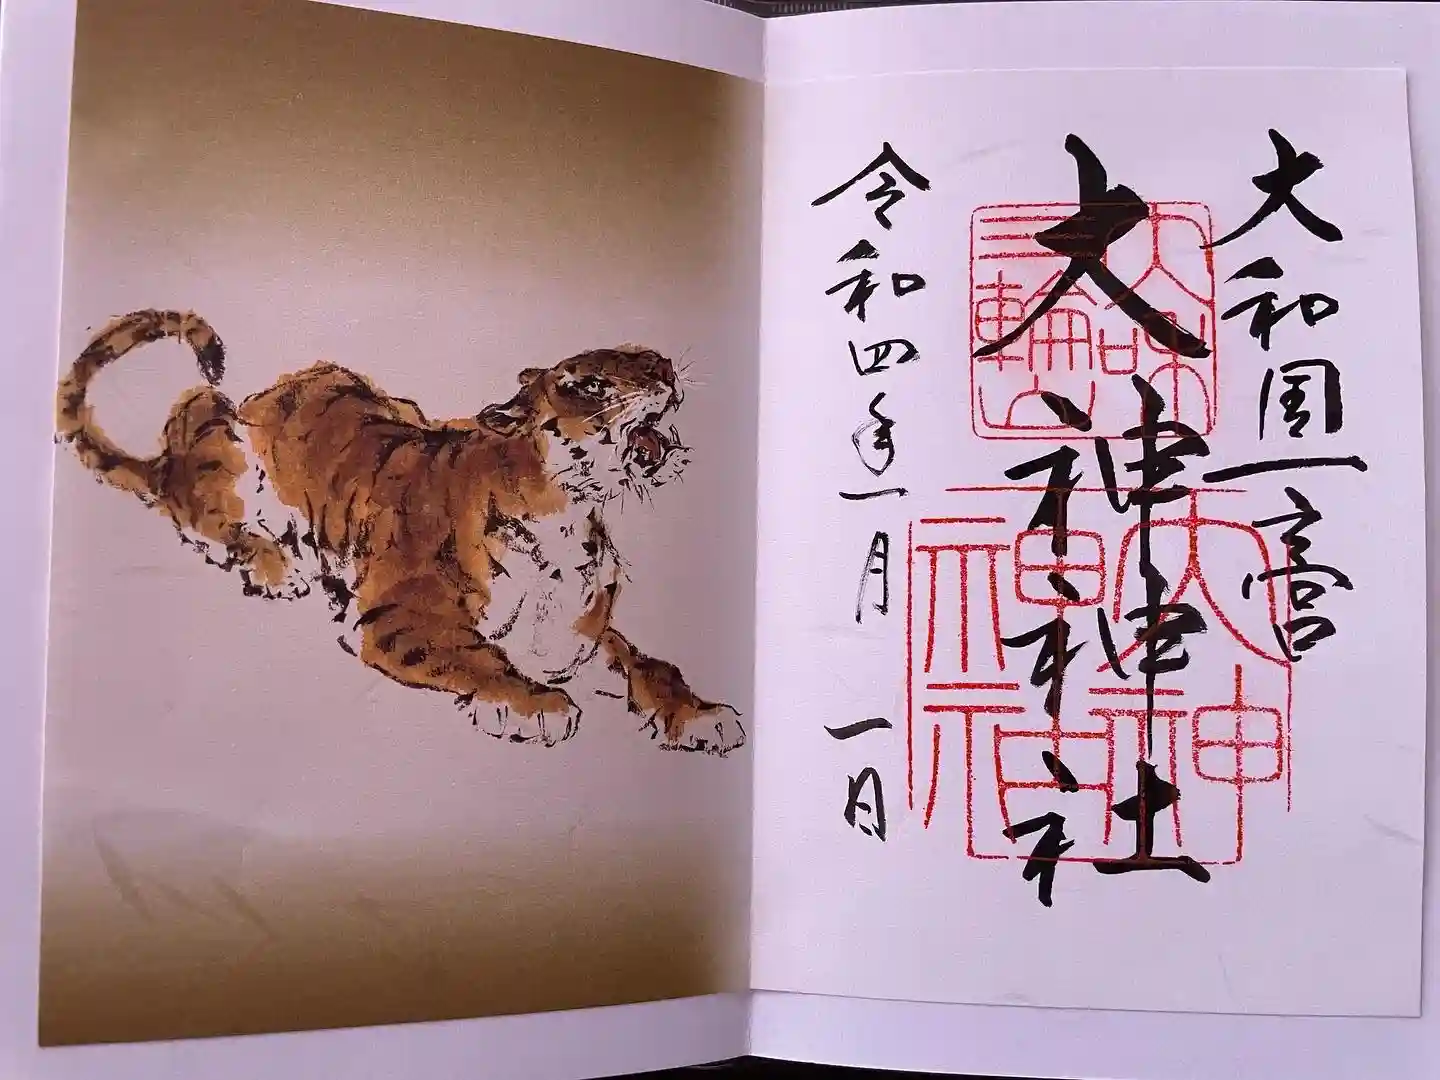 大和国一宮
大神神社
令和四年一月一日
三輪山
大神
神社